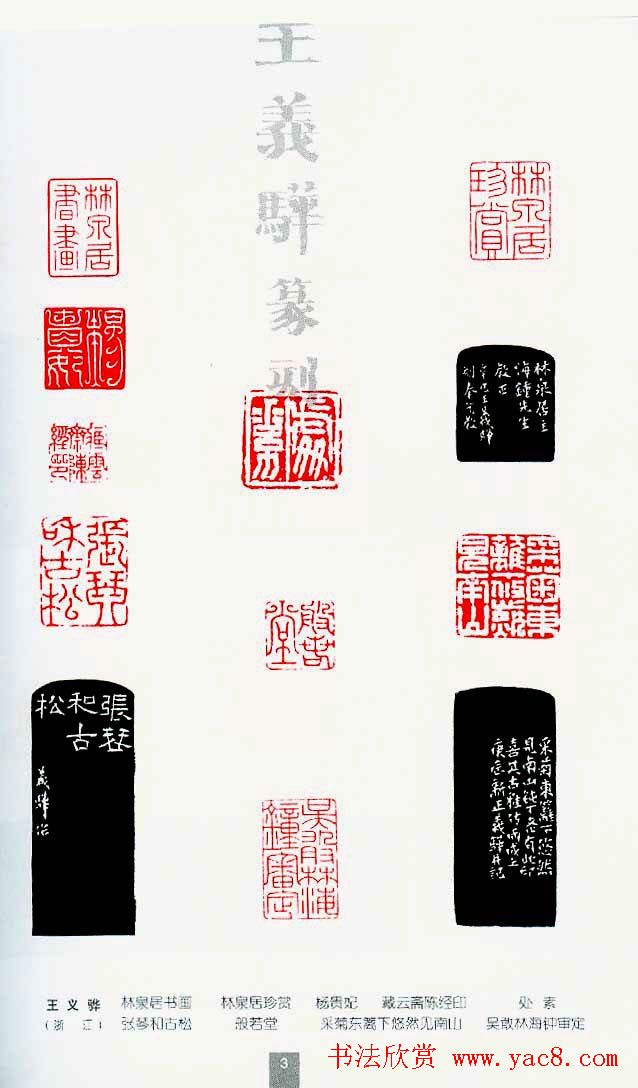 王義驊篆刻
林泉居
書畫
楊
貴妃
張琴
和古松
處
素
般若
堂
吳敢林海
鐘審定
林泉居
珍賞
林泉居主
海鐘先生
教正
采菊東
籬下悠然
見南山
張琴
和古
松
義驊作
采菊東籬下悠然
庚辰新正義驊并記
王义骅 林泉居书画 林泉居珍赏 杨贵妃 藏云斋陈经印 处素
(浙江) 张琴和古松 般若堂 采菊东篱下悠然见南山 吴敢林海钟审定
3
书法欣赏 www.yac8.com